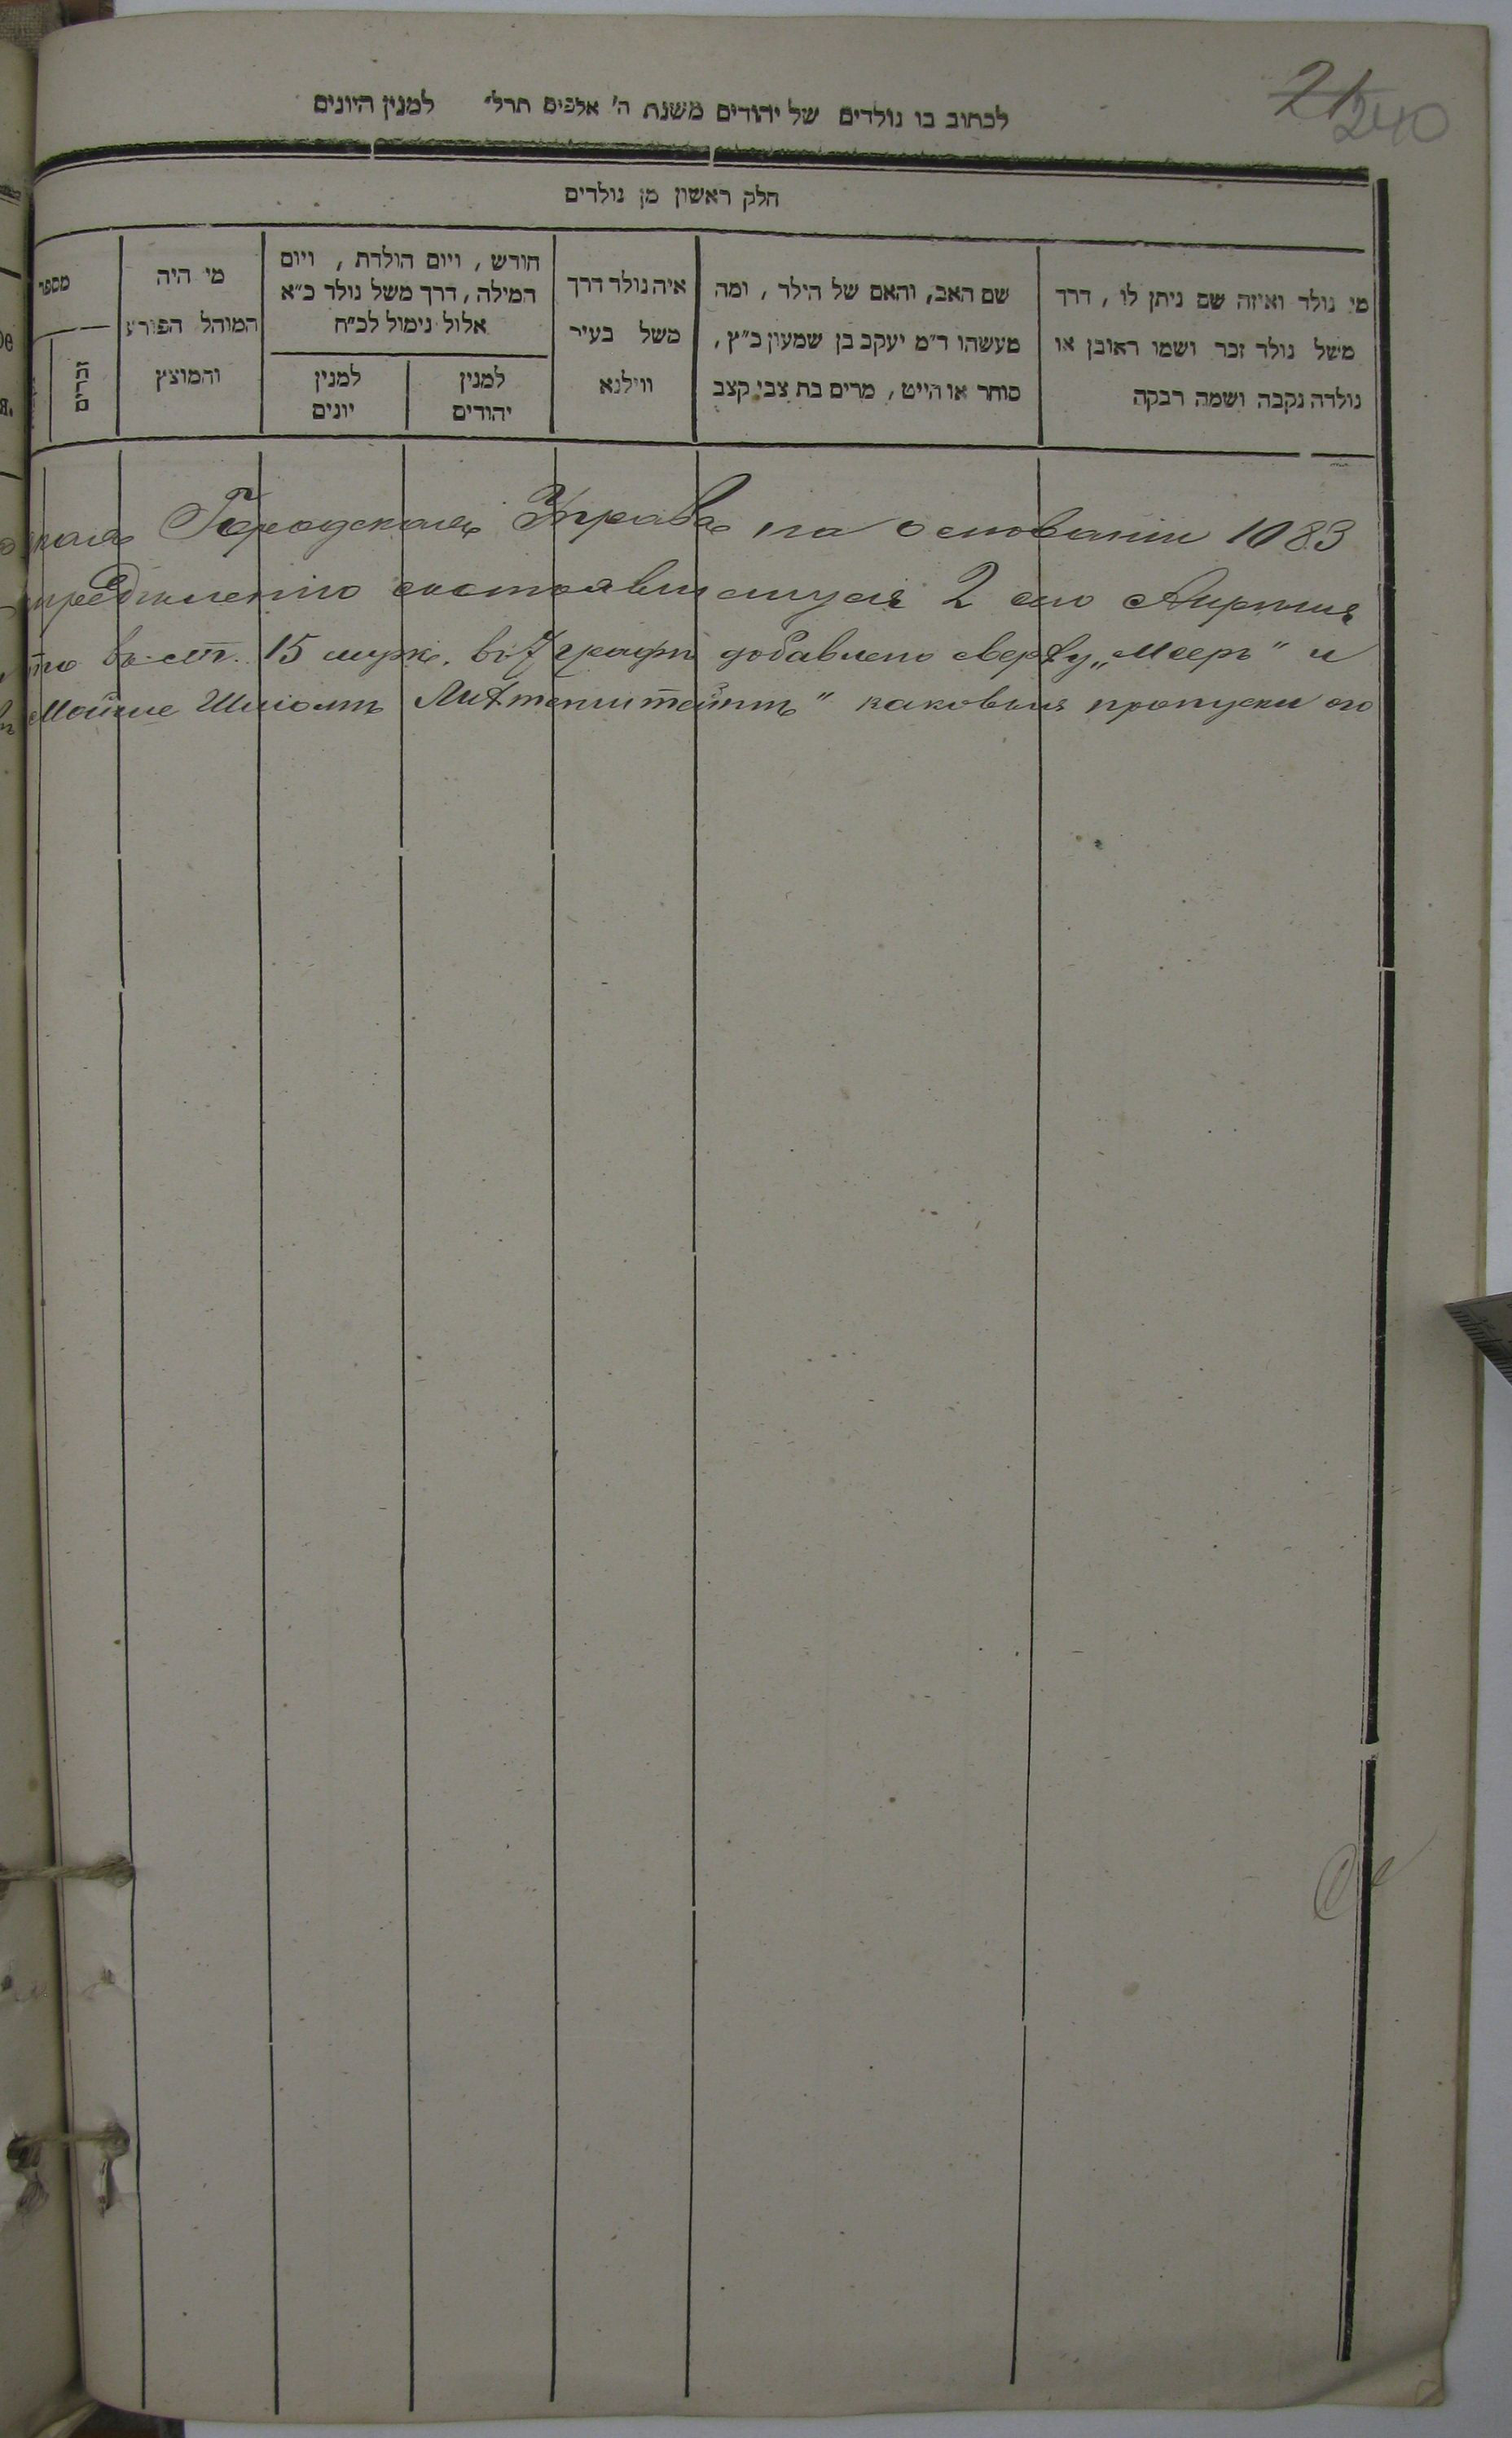 21 240
לכתוב בו נולדים של יהודים משנת ה' אלפים תרל" למנין היונים
חלק ראשון מן נולדים
מי נולד ואיזה שם ניתן לו, דרך
משל נולד זכר ושמו ראובן או
נולדה נקבה ושמה רבקה
שם האב, והאם של הילד, ומה
מעשהו ד"מ יעקב בן שמעון כ"ץ,
סוחר או הייט, מרים בת צבי קצב
איה נולד דרך
משל בעיר
ווילנא
חודש, ויום הולדת, ויום
המילה, דרך משל נולד כ"א
אלול נימול לכ"ח
למנין
יהודים
למנין
יונים
מי היה
המוהל הפורע
והמוצץ
מספר
זכרים
ская Городская Управа на основаніи 1083
предѣленію состоявшемуся 2 го Апрѣля
то въ ст. 15 муж. въ 7 графѣ добавлено сверху „Мееръ" и
Мойше Шліомъ Лихтенштейнъ" каковыя пропуски ого